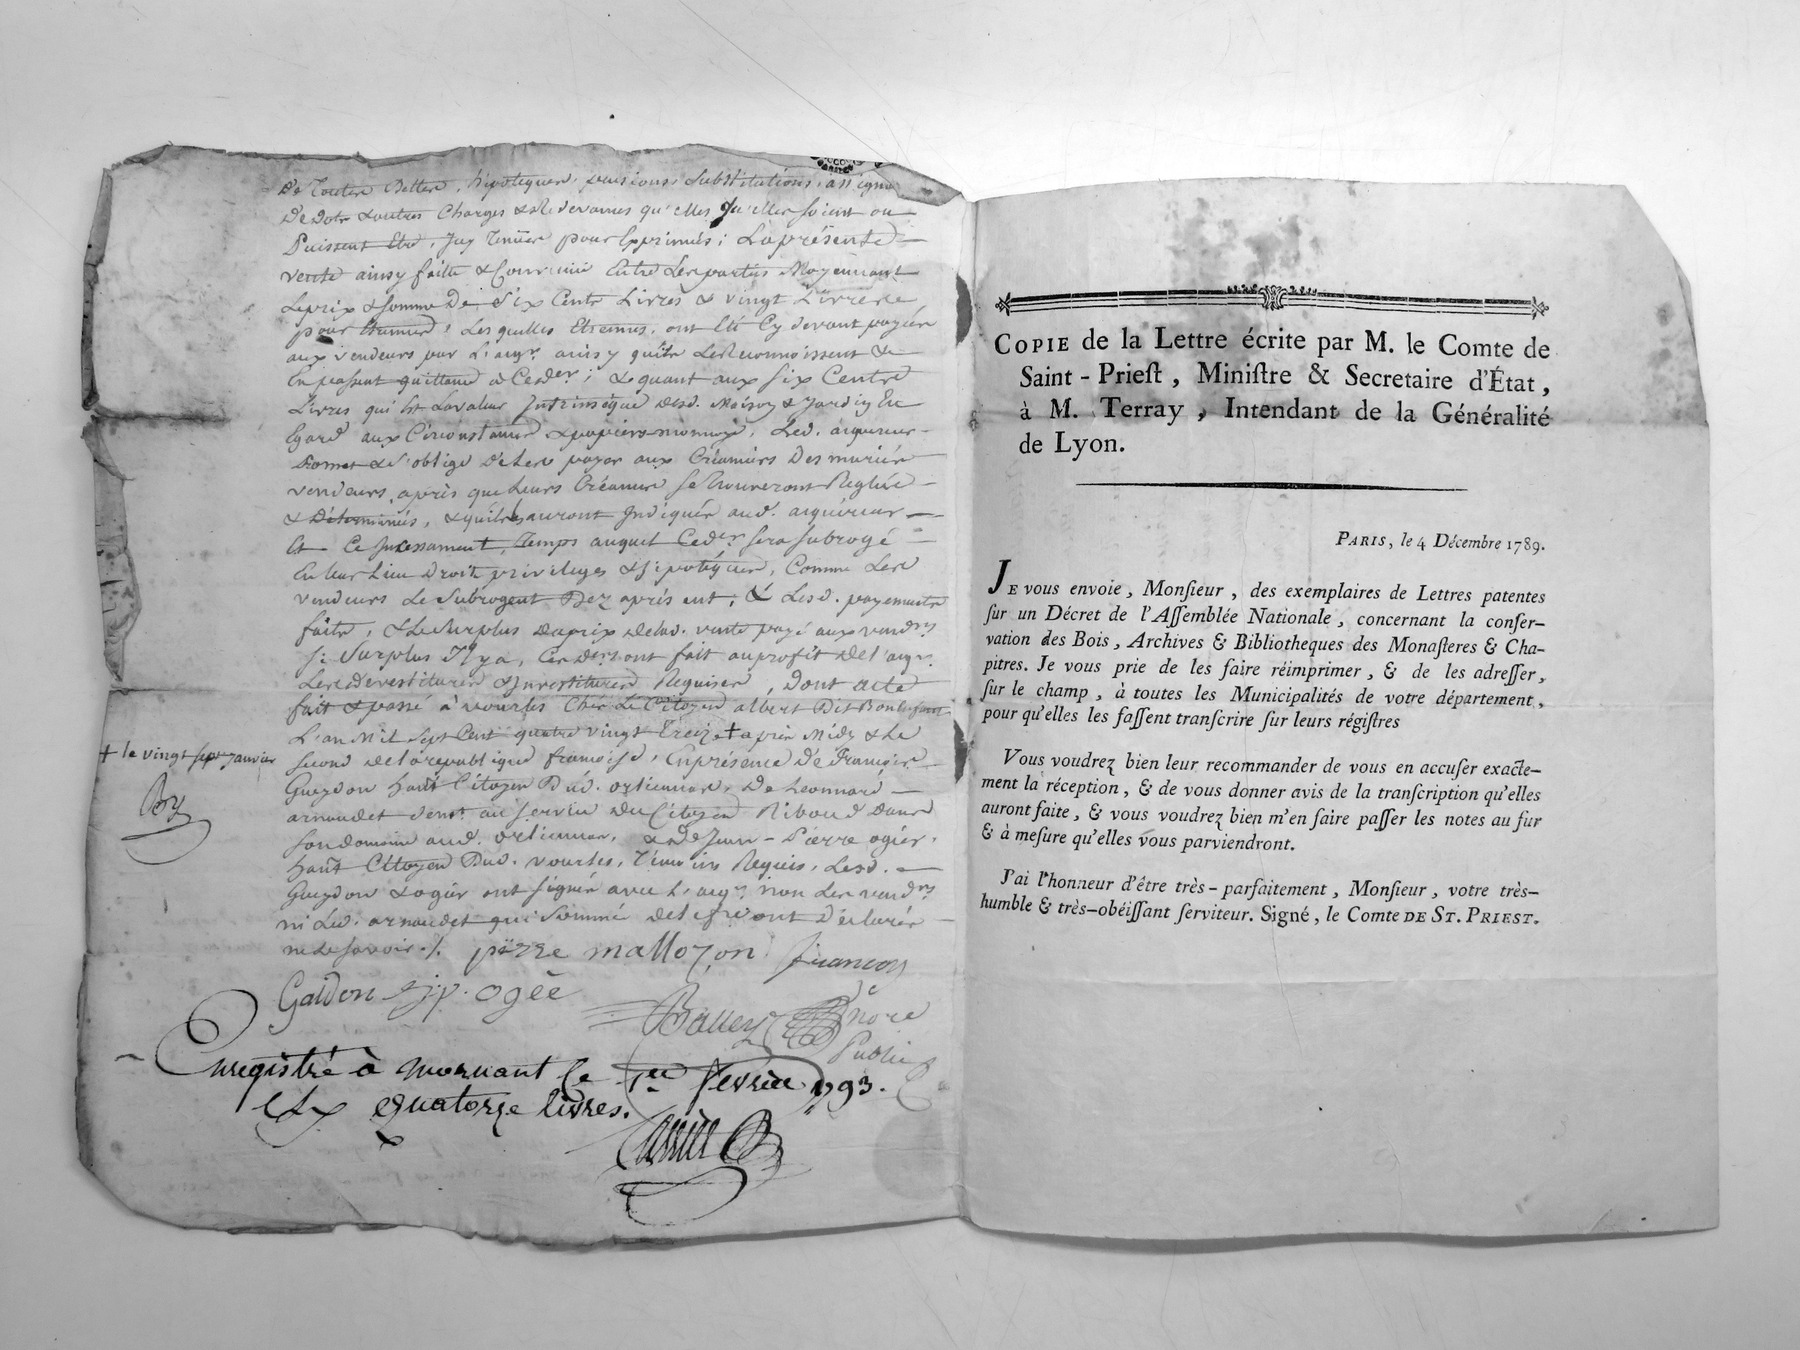 De Toutes Dettes, hipoteques, pensions, substitutions, assignats
De dots & autres Charges & Redevances qu'elles qu'elles soient ou
Puissent Etre, Icy Tenües pour Exprimés; La présente
vente ainsy faitte & Convenüe Entre Les parties Moyennant
Le prix & somme De Six Cents Livres & vingt Livres
pour Etrennes, Les quelles Etrennes, ont Eté Cy devant payées
aux vendeurs par L'aqr. ainsy qu'ils Le Reconnoissent &
En passent quittance à Cedr.; & quant aux six Cents
Livres qui Est La valeur Intrinseque desd. Maison & Jardin En
Egard aux Circonstances & papiers monnoye, Led. aquereur
promet & s'oblige De Les payer aux Créanciers Des mariés
vendeurs, après que Leurs Créances se trouveront Reglées
& Déterminées, & qu'ils les auront Indiqués aud. aquereur
Et Ce Incessament, Temps auquel Cedr. sera subrogé
En Leur Lieu Droits privileges & hipoteques, Comme Les
vendeurs Le Subrogent Dez aprésent; & Lesd. payements
faits, & Le Surplus du prix de lad. vente payé aux vendrs
si Surplus Il y a, Ces ders. ont fait au profit de l'aqr.
Les Devestitures & Investitures Requises, Dont acte
fait & passé à vourles Chés Le Citoyen albert Dit Bonlefant
L'an Mil Sept Cent quatre vingt Treize + après Midy & Le
+ le vingt sept Janvier
second de la republique françoise, En présence De François
Gueydon hant Citoyen Dud. orliennas, De Leonnard
arnaudet demt. au service du Citoyen Riboud dans
son domaine aud. orliennas, & de Jean-Pierre ogier,
hant Citoyen Dud. vourles, Témoins Requis, Lesd.
Gueydon & ogier ont signé avec L'aqr. non Les vendrs
ni Led. arnaudet qui sommés de signer ont Déclarés
ne le savoir ./. pierre mallozon françois
Gaidon j.p. ogée
Enregistré à mornant le 1er fevrier 1793.
quatorze livres.
COPIE de la Lettre écrite par M. le Comte de
Saint-Prieſt, Miniſtre & Secretaire d'État,
à M. Terray, Intendant de la Généralité
de Lyon.
PARIS, le 4 Décembre 1789.
JE vous envoie, Monſieur, des exemplaires de Lettres patentes
ſur un Décret de l'Aſſemblée Nationale, concernant la conſer-
vation des Bois, Archives & Bibliotheques des Monaſteres & Cha-
pitres. Je vous prie de les faire réimprimer, & de les adreſſer,
ſur le champ, à toutes les Municipalités de votre département,
pour qu'elles les faſſent tranſcrire ſur leurs régiſtres
Vous voudrez bien leur recommander de vous en accuſer exacte-
ment la réception, & de vous donner avis de la tranſcription qu'elles
auront faite, & vous voudrez bien m'en faire paſſer les notes au fur
& à meſure qu'elles vous parviendront.
J'ai l'honneur d'être très-parfaitement, Monſieur, votre très-
humble & très-obéiſſant ſerviteur. Signé, le Comte DE ST. PRIEST.